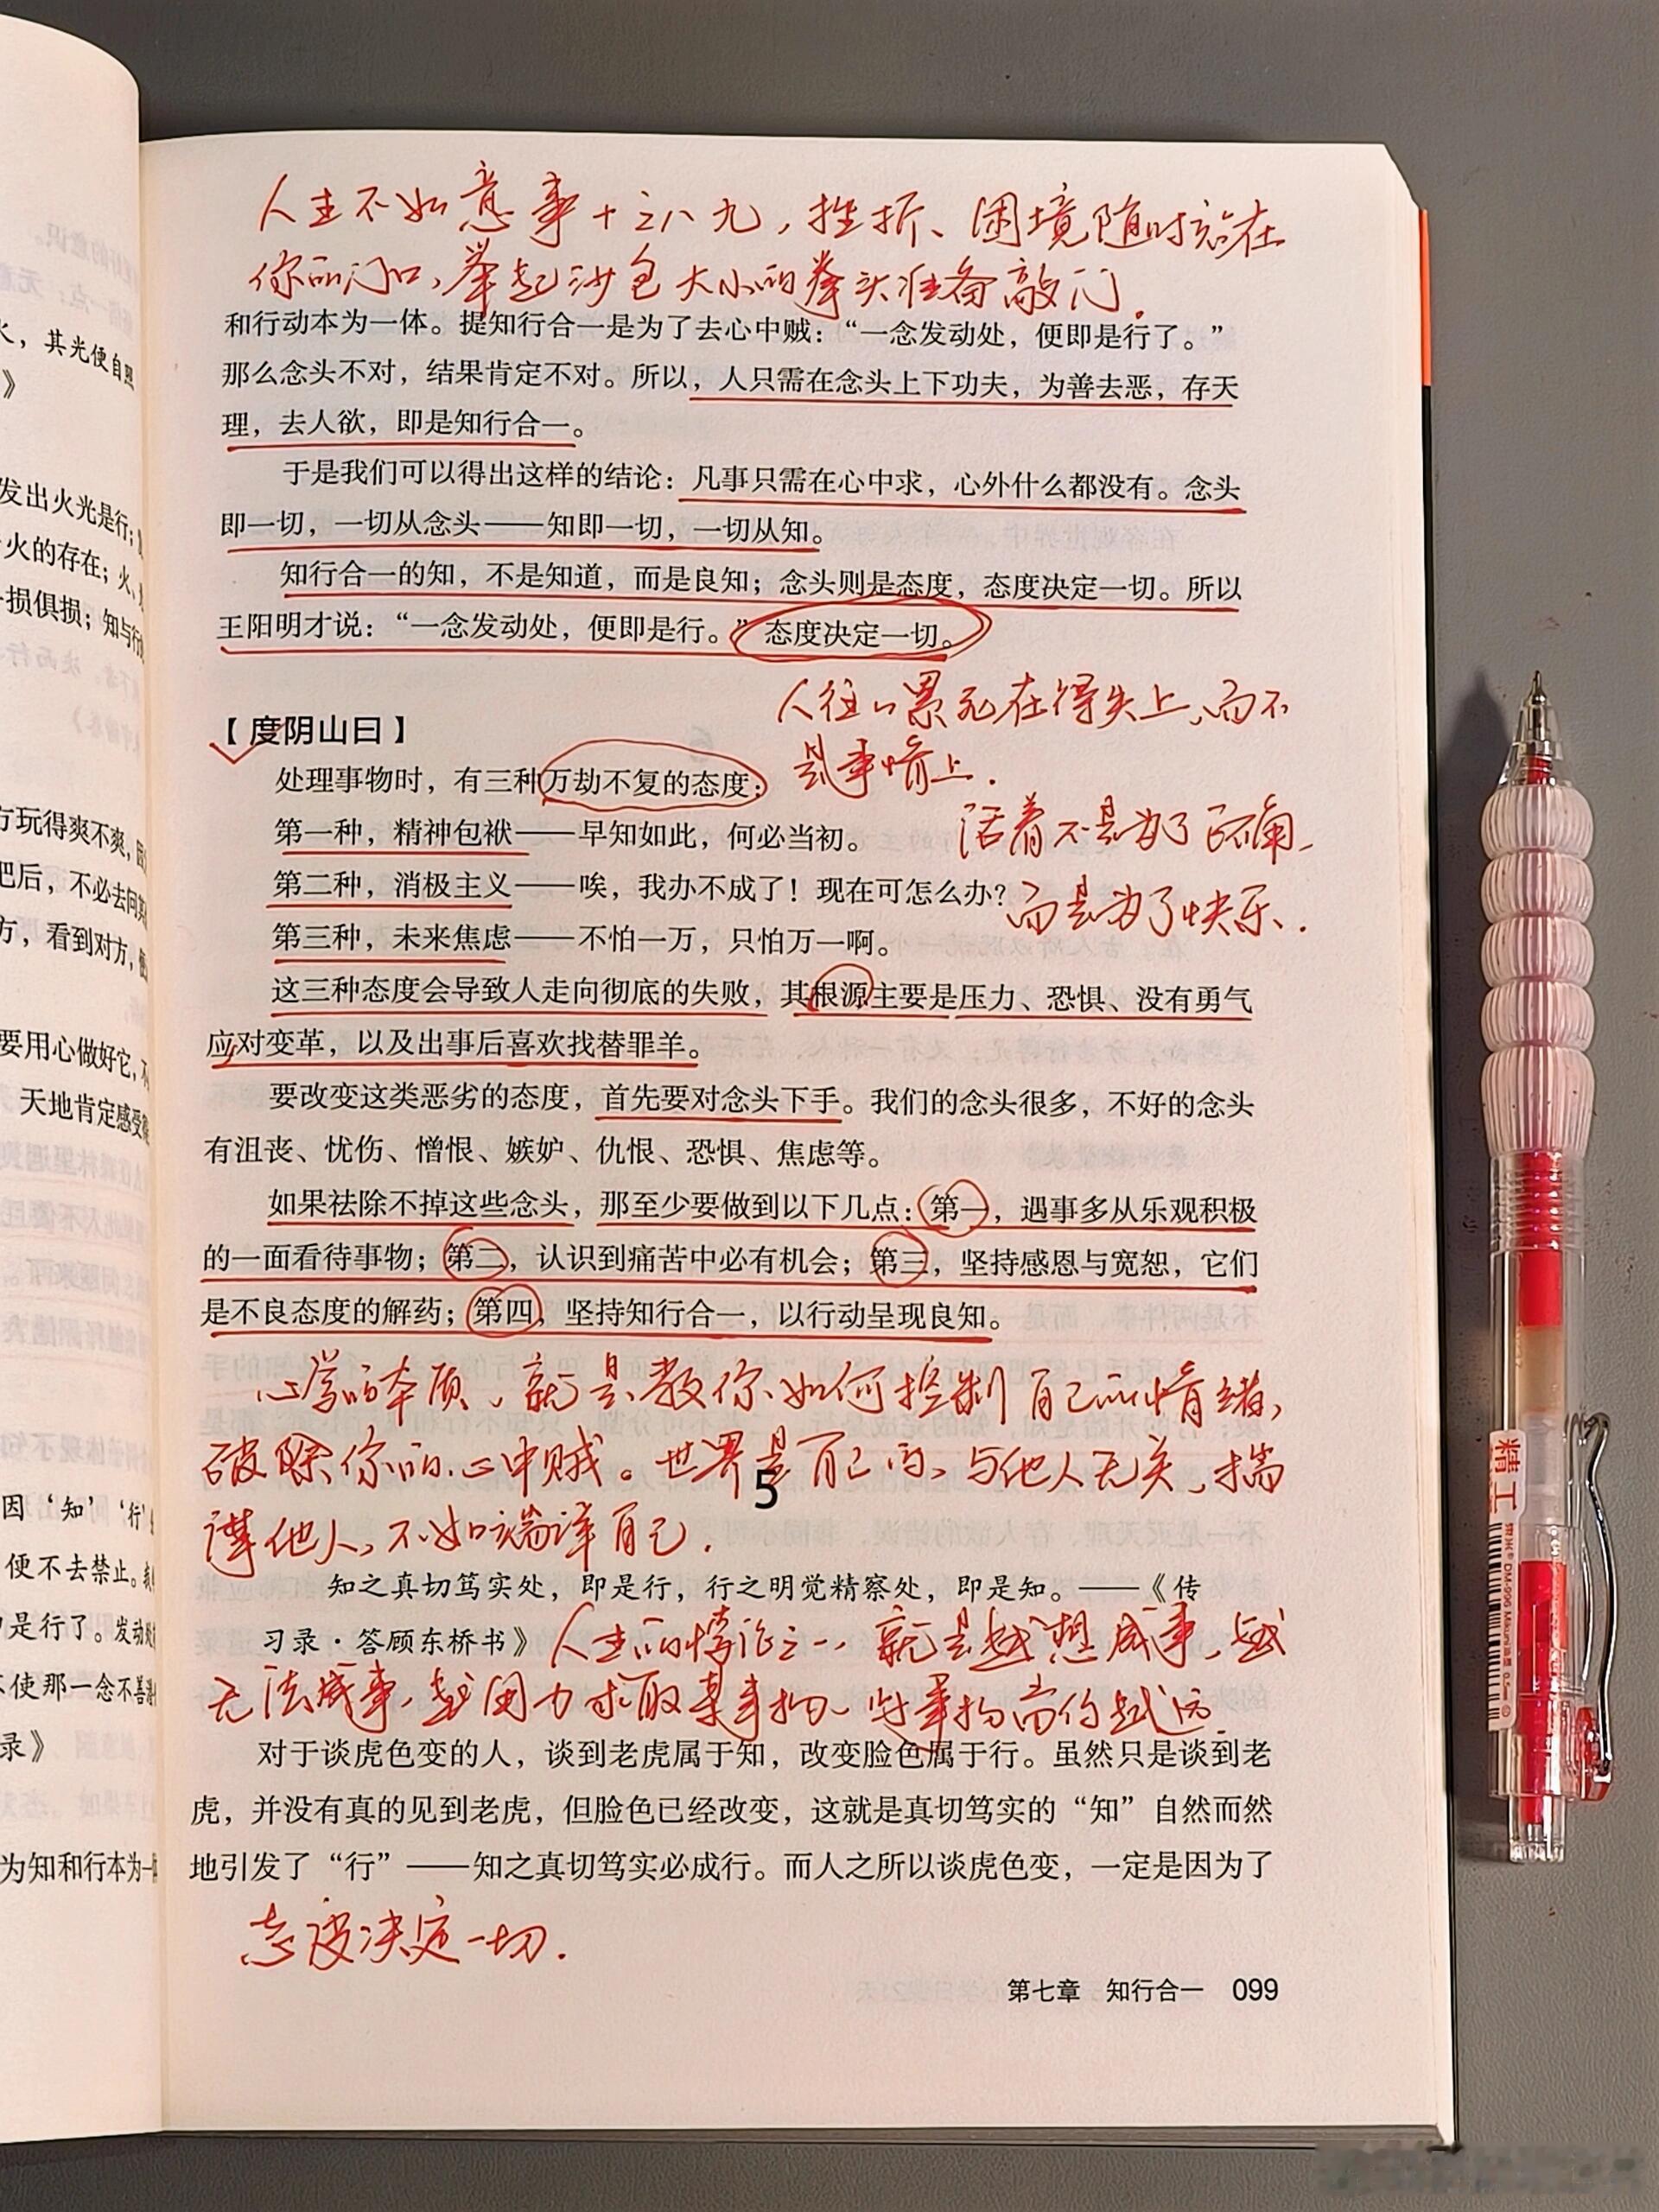 火，其光便自照
》
发出火光是行；
火的存在；火、
损俱损；知与行
方玩得爽不爽，
把后，不必去问
方，看到对方，
要用心做好它，
天地肯定感受
因‘知’‘行’
便不去禁止。
是行了。发动处
使那一念不善
录》
为知和行本为一体
人生不如意事十之八九，挫折、困境随时站在
你的门口，举起沙包大小的拳头准备敲门．
和行动本为一体。提知行合一是为了去心中贼：“一念发动处，便即是行了。”
那么念头不对，结果肯定不对。所以，人只需在念头上下功夫，为善去恶，存天
理，去人欲，即是知行合一。
于是我们可以得出这样的结论：凡事只需在心中求，心外什么都没有。念头
即一切，一切从念头——知即一切，一切从知。
知行合一的知，不是知道，而是良知；念头则是态度，态度决定一切。所以
王阳明才说：“一念发动处，便即是行。”态度决定一切。
人往往累死在得失上，而不
是事情上．
【度阴山曰】
处理事物时，有三种万劫不复的态度：
第一种，精神包袱——早知如此，何必当初。
活着不是为了正确，
第二种，消极主义——唉，我办不成了！现在可怎么办？
而是为了快乐．
第三种，未来焦虑——不怕一万，只怕万一啊。
这三种态度会导致人走向彻底的失败，其根源主要是压力、恐惧、没有勇气
应对变革，以及出事后喜欢找替罪羊。
要改变这类恶劣的态度，首先要对念头下手。我们的念头很多，不好的念头
有沮丧、忧伤、憎恨、嫉妒、仇恨、恐惧、焦虑等。
如果祛除不掉这些念头，那至少要做到以下几点：第一，遇事多从乐观积极
的一面看待事物；第二，认识到痛苦中必有机会；第三，坚持感恩与宽恕，它们
是不良态度的解药；第四，坚持知行合一，以行动呈现良知。
心学的本质，就是教你如何控制自己的情绪，
破除你的心中贼。世界是自己的，与他人无关，揣
5
详他人，不如端详自己．
知之真切笃实处，即是行，行之明觉精察处，即是知。——《传
习录·答顾东桥书》
人生的悖论之一，就是越想成事，越
无法成事，越用力求取某事物，与事物离的越远．
对于谈虎色变的人，谈到老虎属于知，改变脸色属于行。虽然只是谈到老
虎，并没有真的见到老虎，但脸色已经改变，这就是真切笃实的“知”自然而然
地引发了“行”——知之真切笃实必成行。而人之所以谈虎色变，一定是因为了
态度决定一切．
第七章 知行合一 099
精工